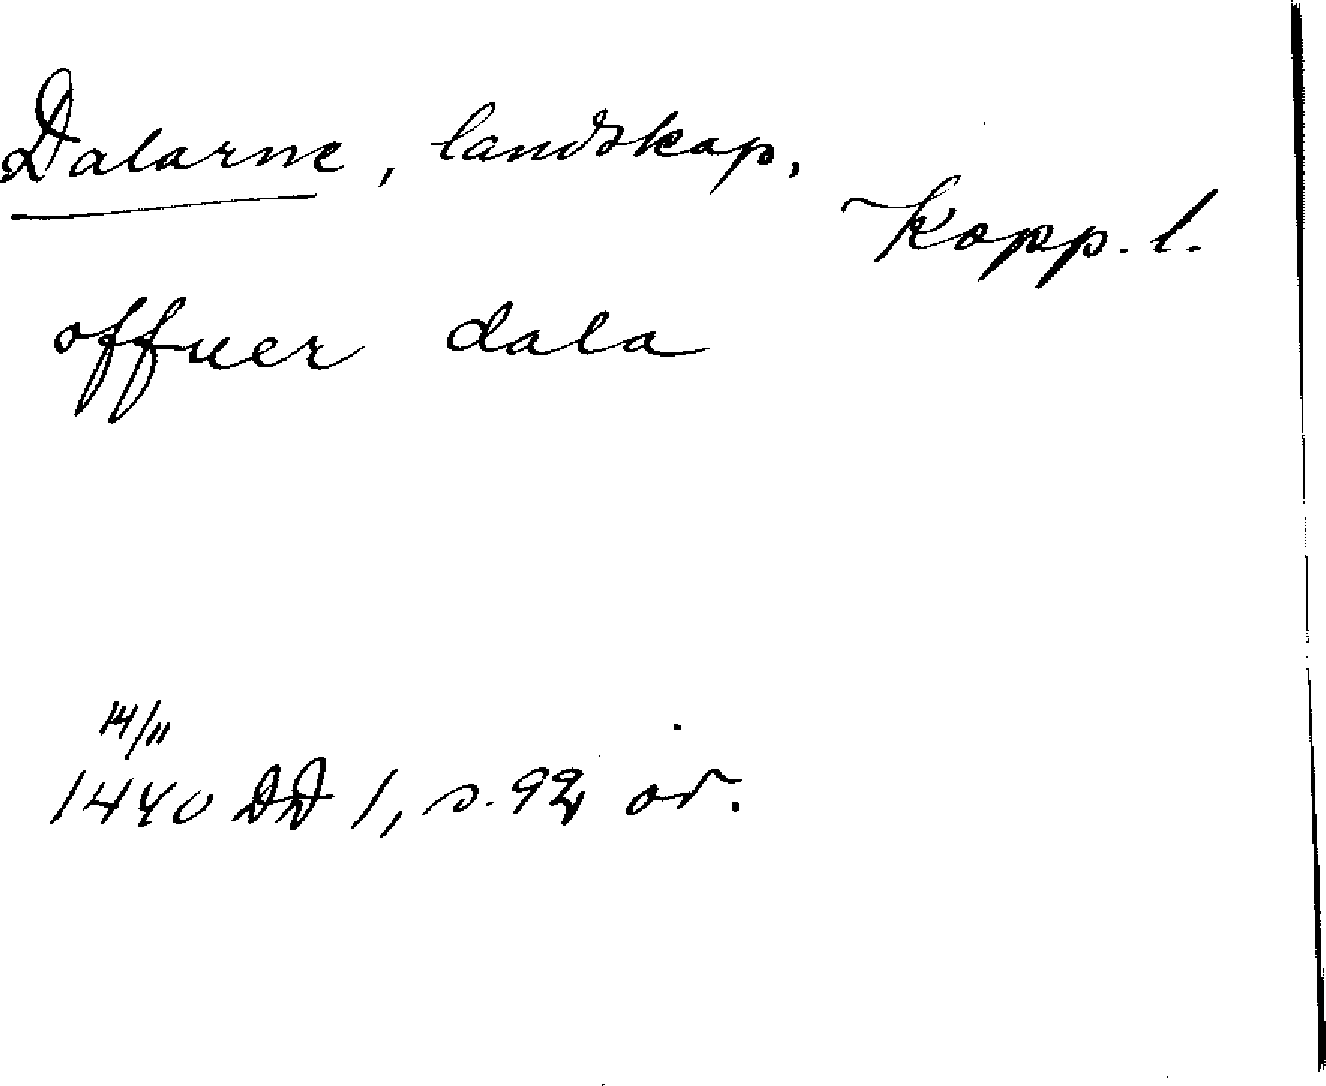 Dalarne, landskap,
Kopp. l.
offuer dala
14/11
1440 DD 1, s. 92 or.